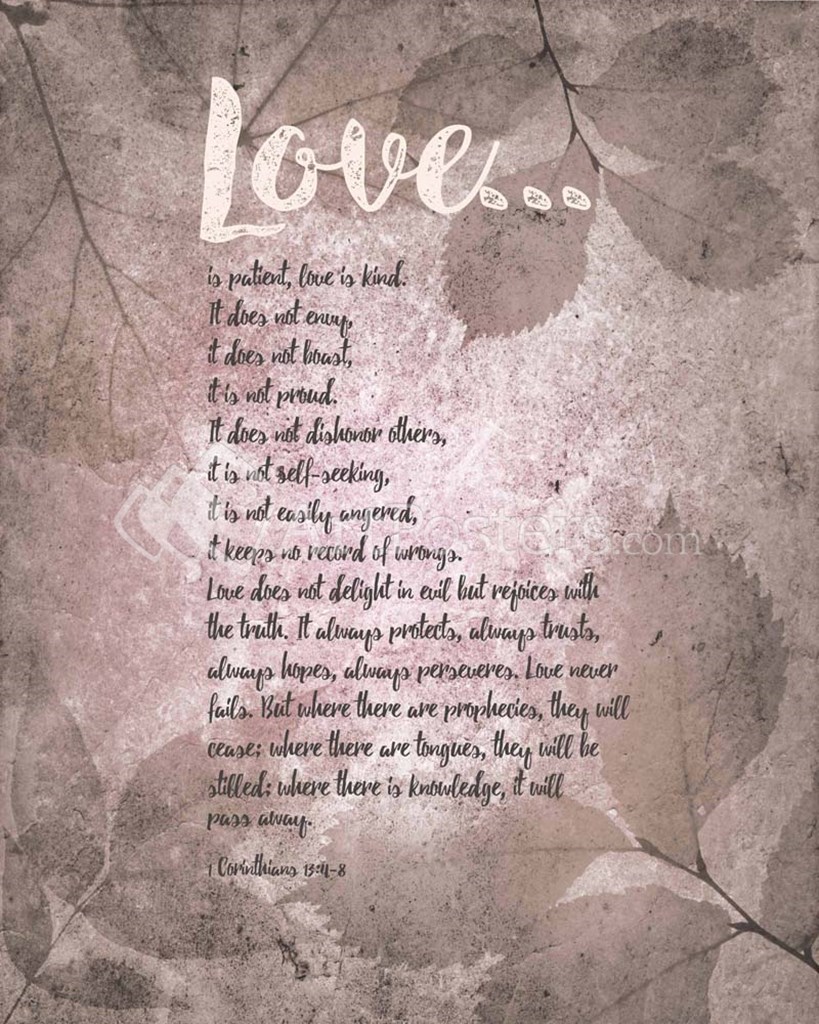 Love...
is patient, love is kind.
It does not envy,
it does not boast,
it is not proud.
It does not dishonor others,
it is not self-seeking,
it is not easily angered,
it keeps no record of wrongs.
Love does not delight in evil but rejoices with
the truth. It always protects, always trusts,
always hopes, always perseveres. Love never
fails. But where there are prophecies, they will
cease; where there are tongues, they will be
stilled; where there is knowledge, it will
pass away.
1 Corinthians 13:4-8